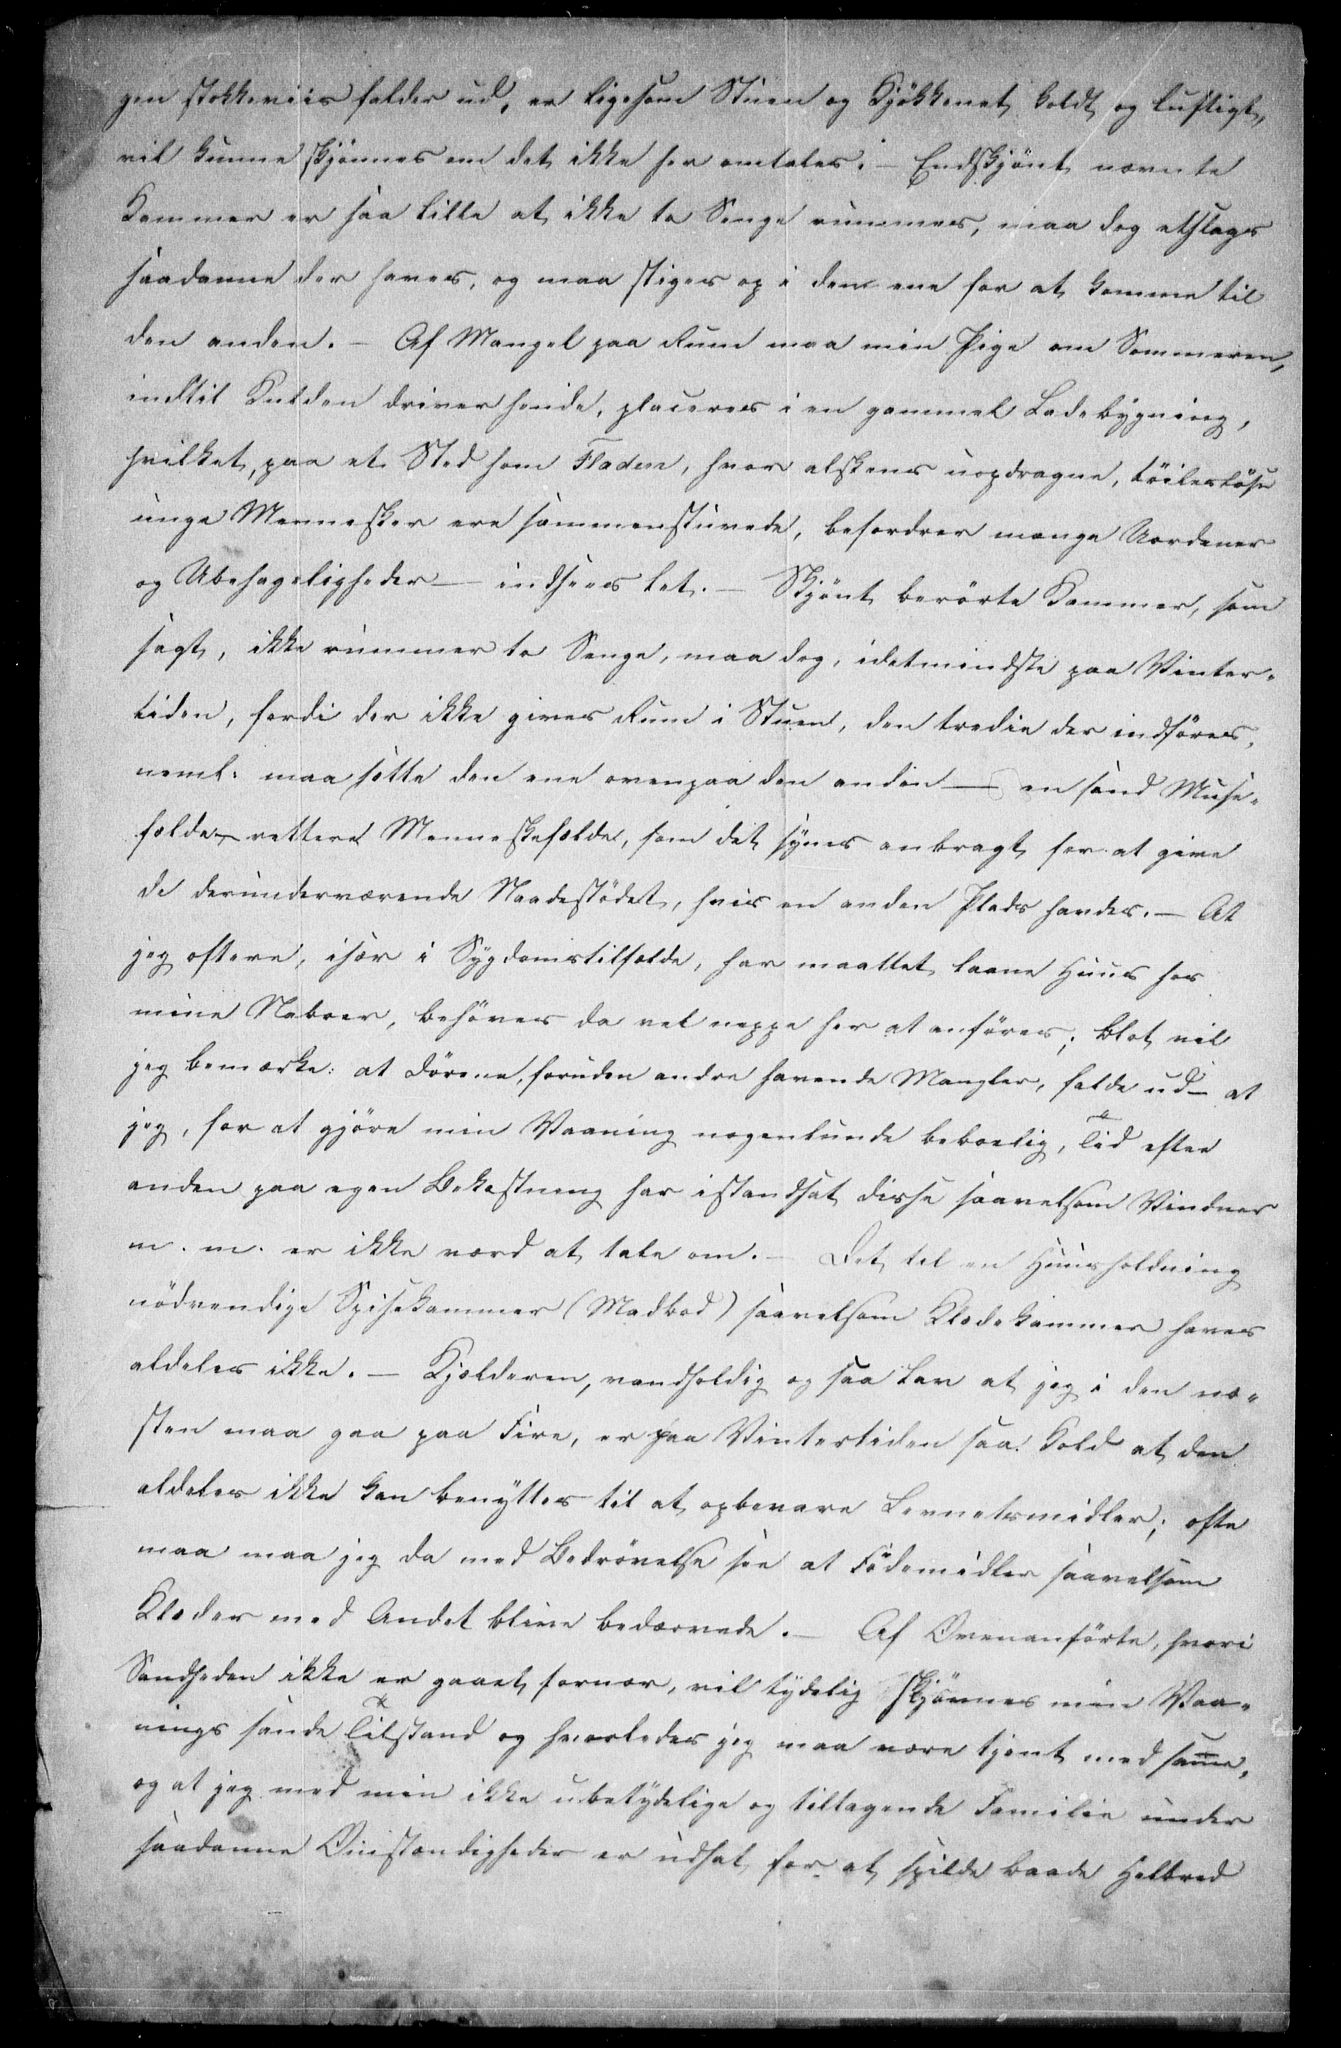 gen stokkeviis falder ud, er ligesom Stuen og Kjökkenet koldt og luftigt,
vil kunne skjönnes om det ikke her omtales. — Endskjönt nævnte
Kammer er saa lille at ikke to Senge rummes, maa dog etslags
saadanne der haves, og maa stiges op i den ene for at komme til
den anden. — Af Mangel paa Rum maa min Pige om Sommeren,
indtil Kulden driver hende, placeres i en gammel Ladebygning,
hvilket, paa et Sted som Fladen, hvor alskens uopdragne, töileslöse
unge Mennesker ere sammenstuvede, befordrer mange Uordener
og Ubehageligheder — indsees let. — Skjönt berörte Kammer, som
sagt, ikke rummer to Senge, maa dog, idetmindste paa Vinter-
tiden, fordi der ikke gives Rum i Stuen, den tredie der indföres,
neml: maa sætte den ene ovenpaa den anden — en sand Muse-
fælde, rettere Menneskefælde, som det synes anbragt for at give
de derunderværende Naadestödet, hvis en anden Plads havdes. — At
jeg oftere, især i Sygdomstilfælde, har maattet laane Huus hos
mine Naboer, behöves da vel neppe her at anföres; blot vil
jeg bemærke: at Dörene, foruden andre havende Mangler, falde ud — at
jeg, for at gjöre min Vaaning nogenlunde beboelig, Tid efter
anden paa egen Bekostning har istandsat disse saavelsom Vinduer
m. m. er ikke værd at tale om. — Det til en Huusholdning
nödvendige Spisekammer (Madbod) saavelsom Klædekammer haves
aldeles ikke. — Kjelderen, vandholdig og saa lav at jeg i den næ-
sten maa gaa paa Fire, er paa Vintertiden saa kold at den
aldeles ikke kan benyttes til at opbevare Levnetsmidler; ofte
maa maa jeg da med Bedrövelse see at Födemidler saavelsom
Klæder med Andet blive bedærvede. — Af Ovenanförte, hvori
Sandheden ikke er gaaet fornær, vil tydelig skjönnes min Vaa-
nings sande Tilstand og hvorledes jeg maa være tjent med samme,
og at jeg med min ikke ubetydelige og tiltagende Familie under
saadanne Omstændigheder er udsat for at spilde baade Helbred